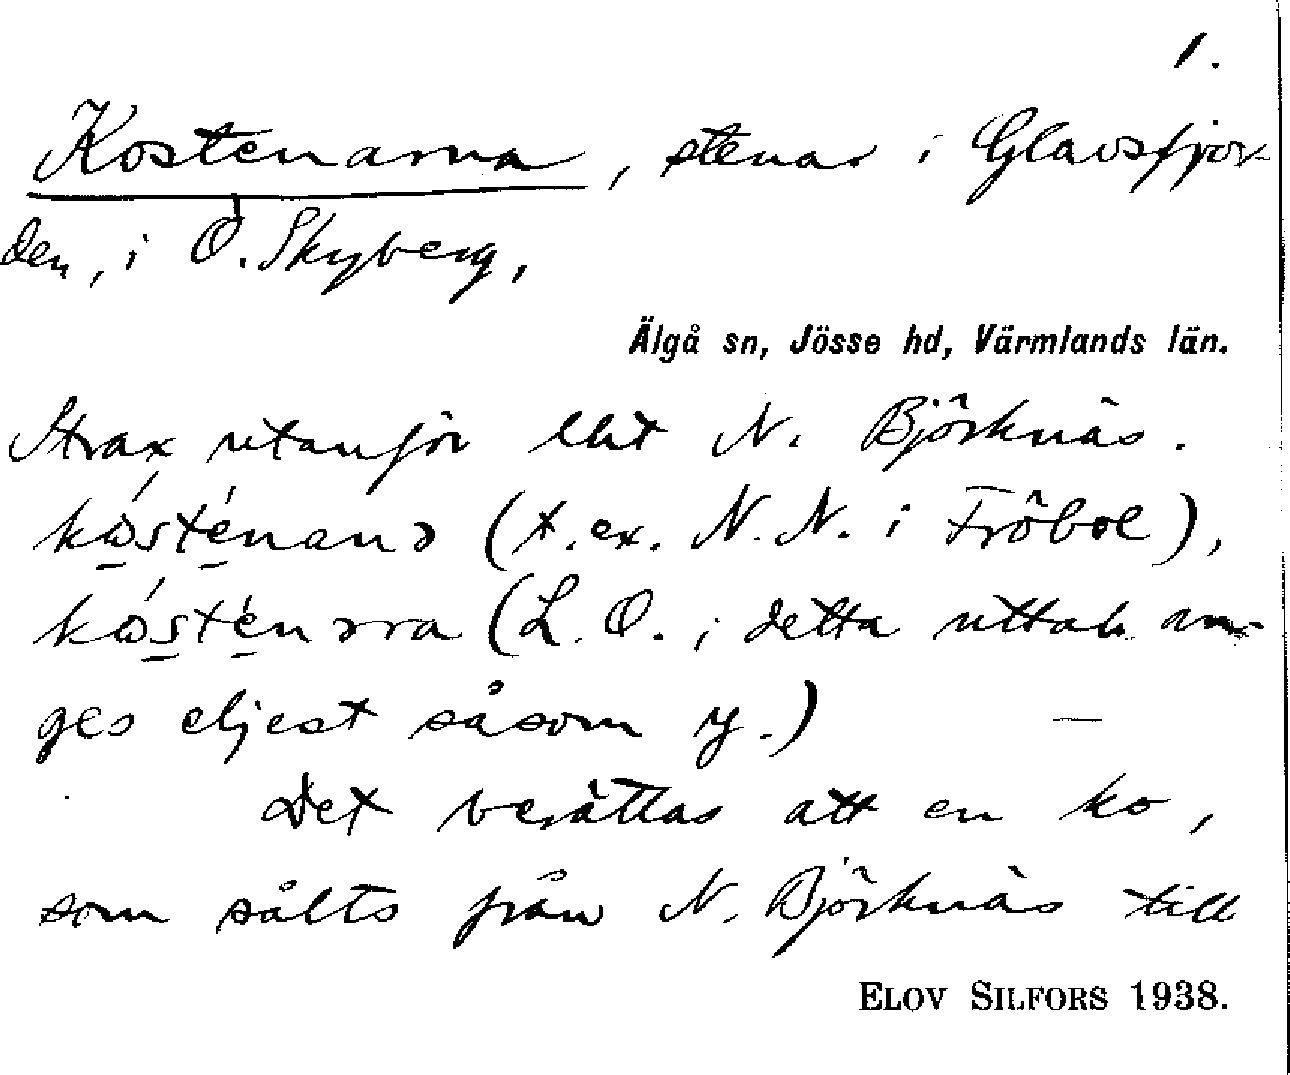 1.
Kostenarna, stenar i Glavsfjor-
den, i Ö. Skyberg,
Älgå sn, Jösse hd, Värmlands län.
Strax utanför lht N. Björknäs.
(t.ex. N. N. i Fröbol),
(L. O. ; detta uttal an-
ges eljest såsom y.) —
Det berättas att en ko,
som sålts från N. Björknäs till
ELOV SILFORS 1938.